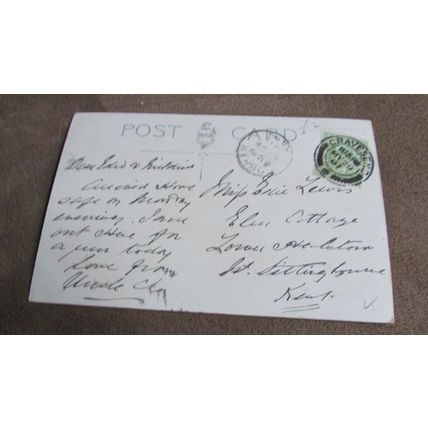 POST CARD
GRAVESEND
Dear Edie &
arrived Home
safe on Monday
evening. I am
out Here for
a run today
Love from
Uncle
Miss Edie Lewis
Elm Cottage
Lower Halstow
Nr Sittingbourne
Kent.